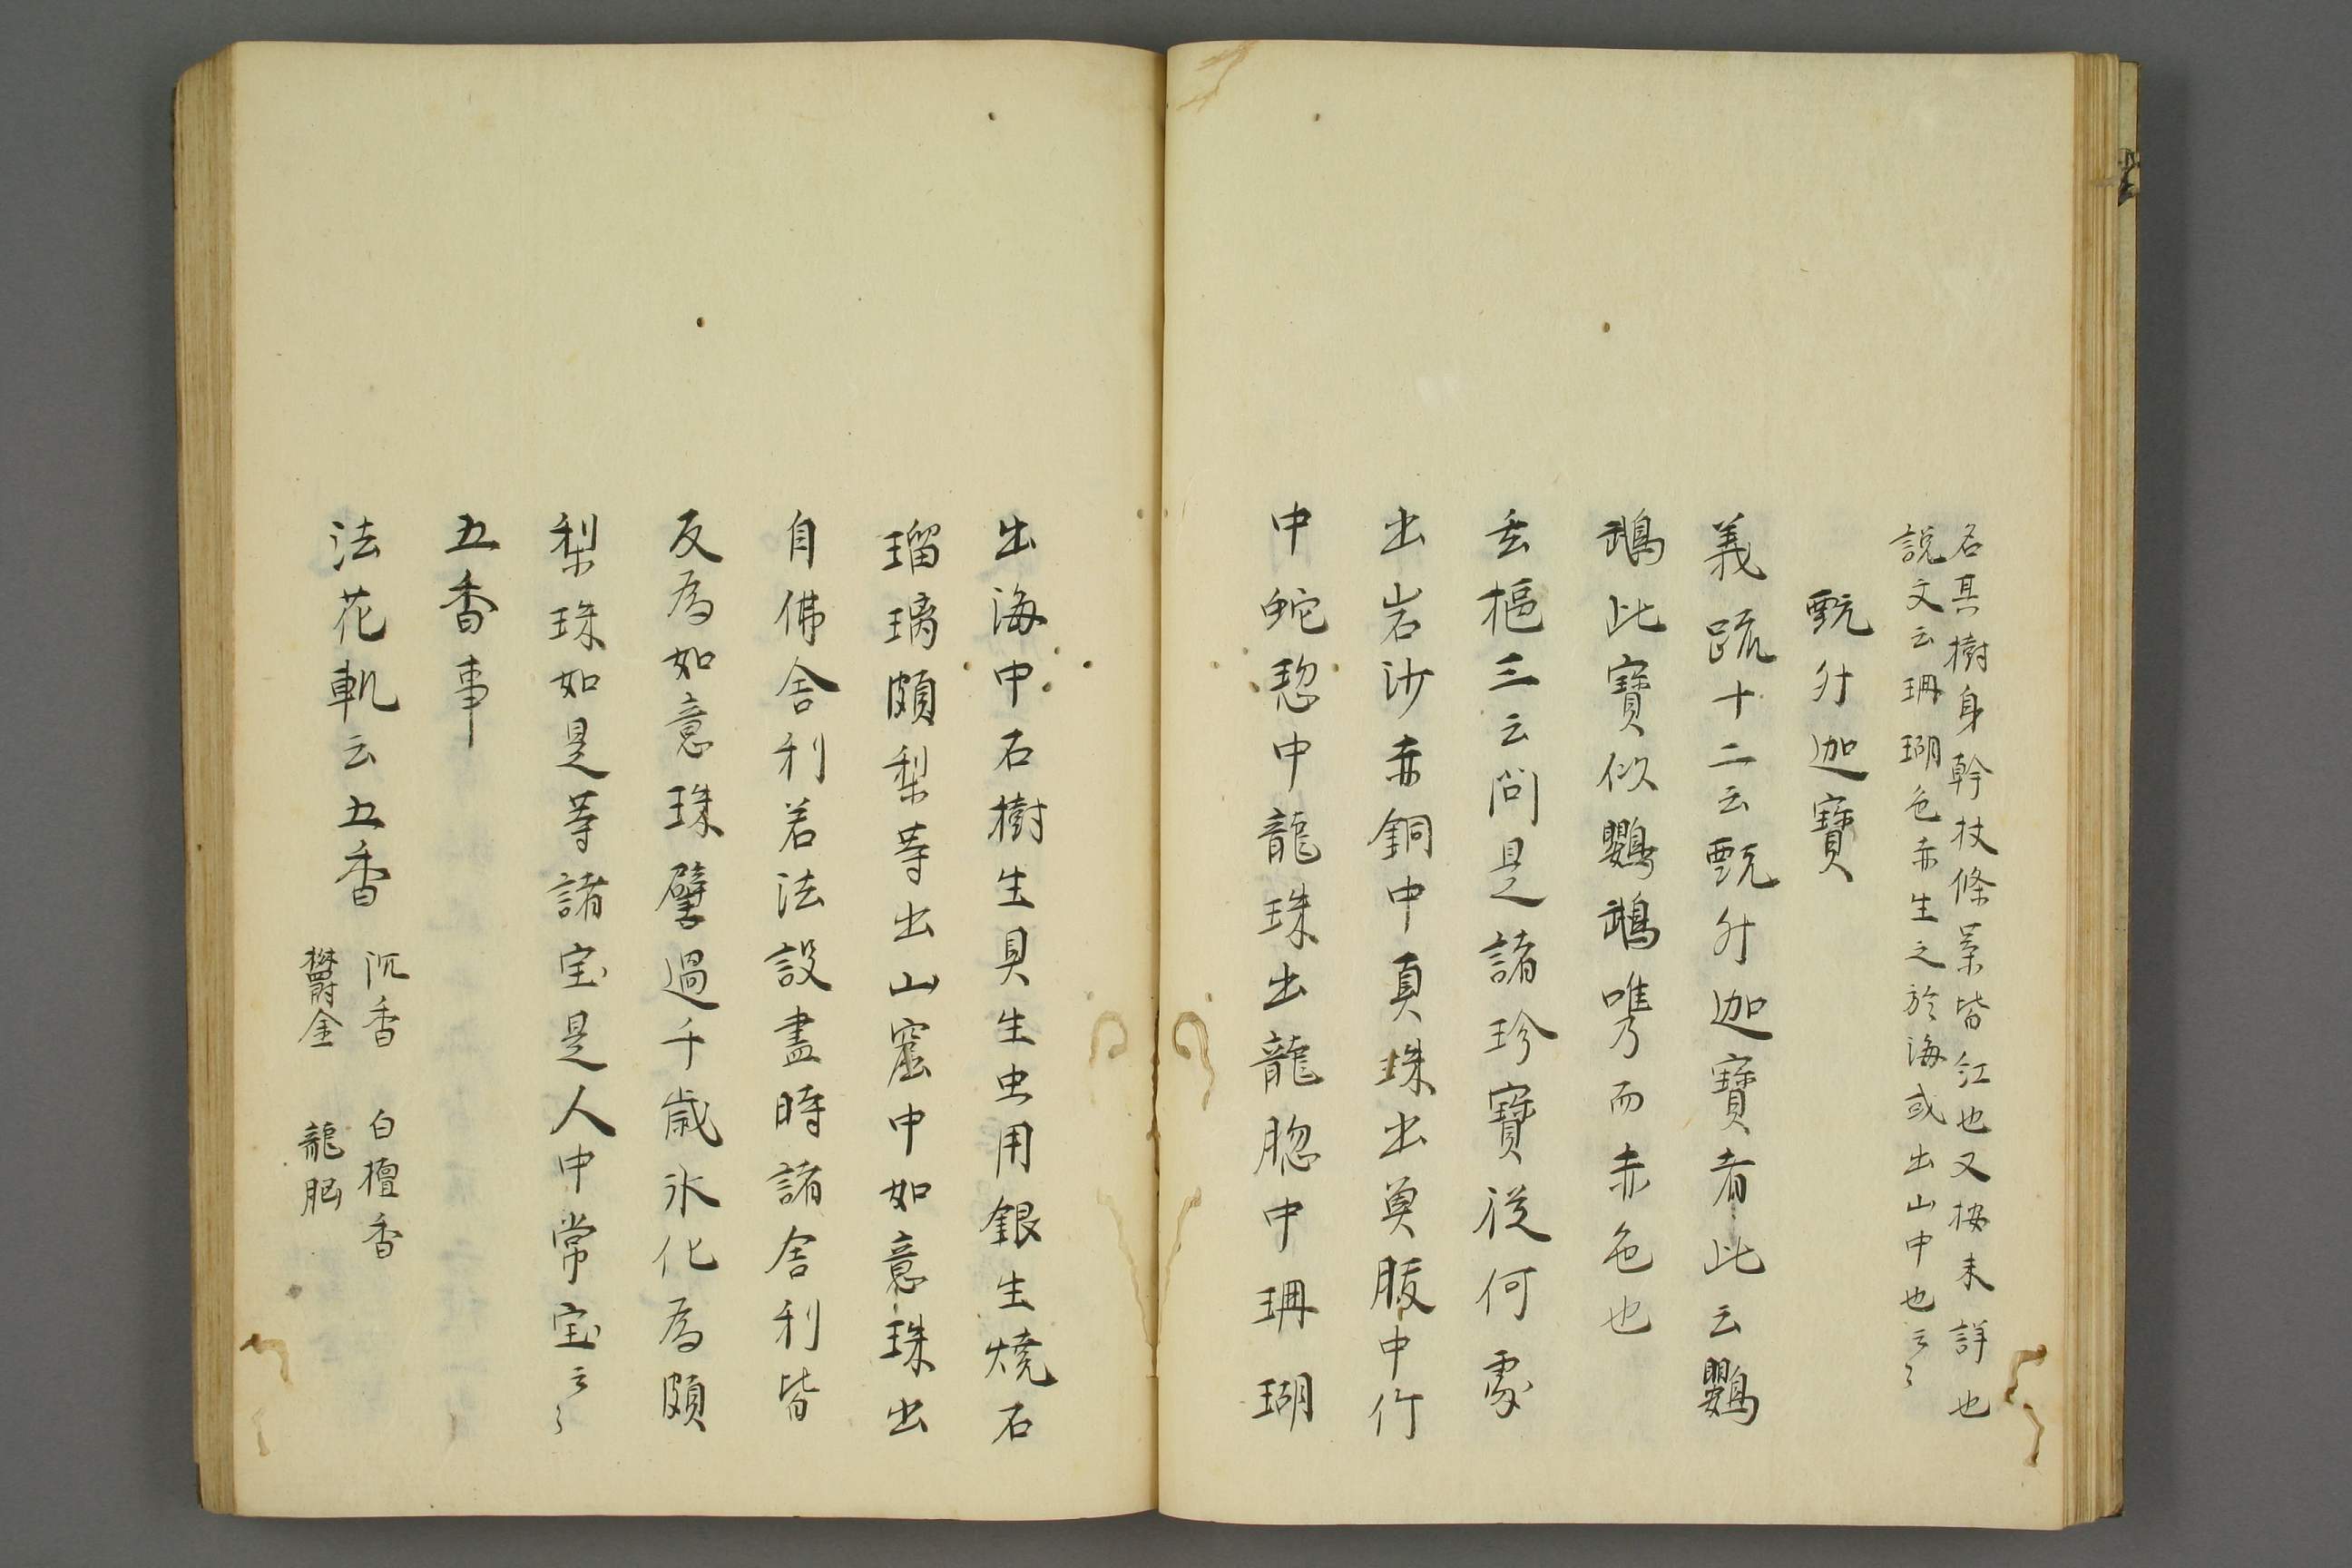 名其樹身幹枝條葉皆紅也又按未詳也
説文云珊瑚色赤生之於海或出山中也云々
甄舛迦寶
義䟽十二云甄舛迦寶者此云鸚
䳇此寶似鸚䳇嘴而赤色也
玄樞三云問是諸珍寶從何處
出岩沙赤銅中真珠出魚腹中竹
中蛇𦛁中龍珠出龍𦛁中珊瑚
出海中石樹生貝生虫用銀生燒石
瑠璃頗梨等出山窟中如意珠出
自佛舍利若法設盡時諸舍利皆
反為如意珠譬過千歳氷化為頗
梨珠如是等諸宝是人中常宝云々
五香事
法花軌云五香
沉香 白檀香
欝金 龍𦛁